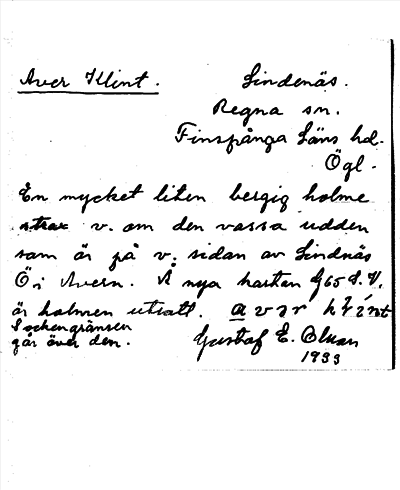 Aver Klint.
Lindenäs.
Regna sn.
Finspånga Läns hd.
Ögl.
En mycket liten bergig holme
strax v. om den vassa udden
som är på v. sidan av Lindnäs
Ö i Avern. Å nya kartan G65 S.V.
är holmen utsatt. avər
Sockengränsen
går över den.
Gustaf E. Olsson
1933